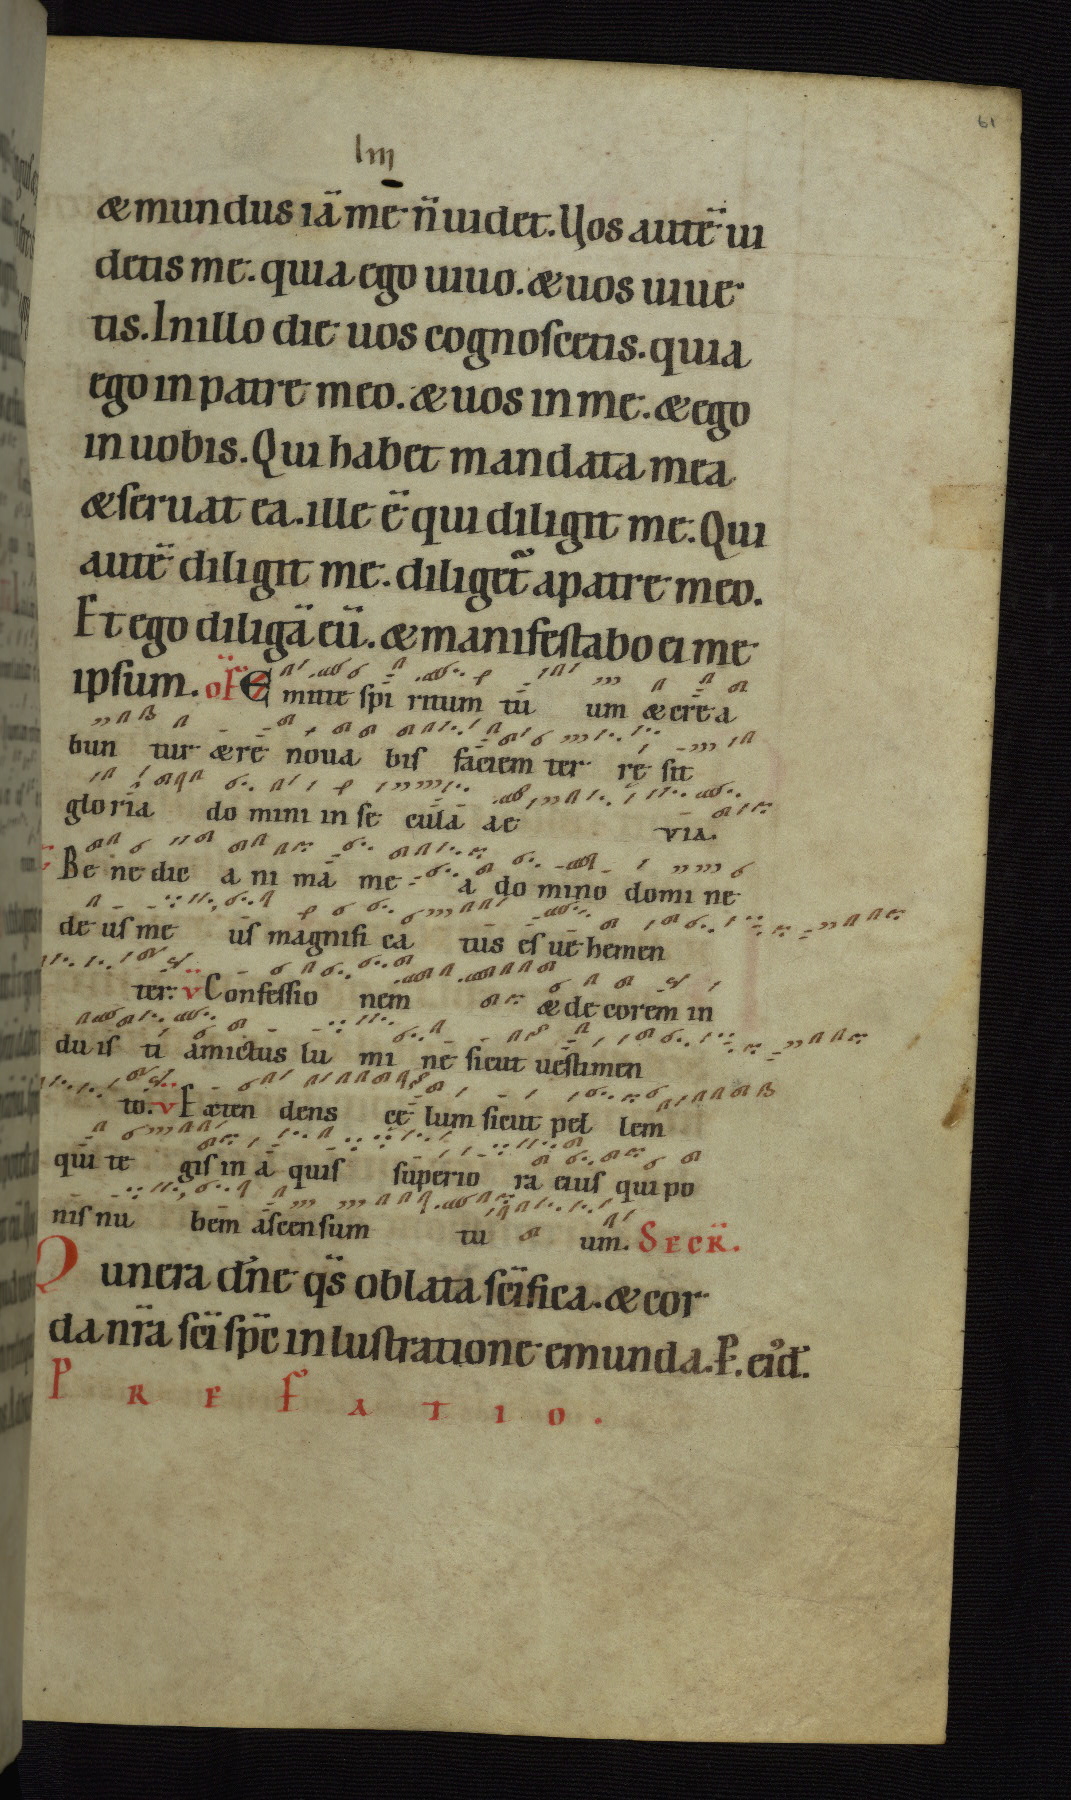 61
lııı
& mundus iā me n̄ uidet. Vos autē ui
detis me. quia ego uiuo. & uos uiue
tis. In illo die uos cognoſcetis. quia
ego in patre meo. & uos in me. & ego
in uobis. Qui habet mandata mea
& ſeruat ea. ille ē qui diligit me. Qui
autē diligit me. diliget̃ a patre meo.
Et ego diligā eū. & manifeſtabo ei me
ipſum. oƑ Emitte ſpi ritum tū um & cre a
bun tur & re noua bis faciem ter re ſit
gloria do mini in ſe cula ae VIA.
Be ne dic a ni ma me a do mino domi ne
de uſ me uſ magnifi ca tus eſ ue hemen
ter. v Confeſſio nem & de corem in
du iſ ti amictus lu mi ne ſicut ueſtimen
to. v Exten dens ce lum ſicut pel lem
qui te giſ in a quiſ ſuperio ra eiuſ qui po
niſ nu bem aſcenſum tu um. SECR̄.
Munera dñe qs̄ oblata ſc̄ifica. & cor
da nr̄a ſc̄i ſp̄c inluſtratione emunda. P. ei᷒d̄.
PREFATIO.